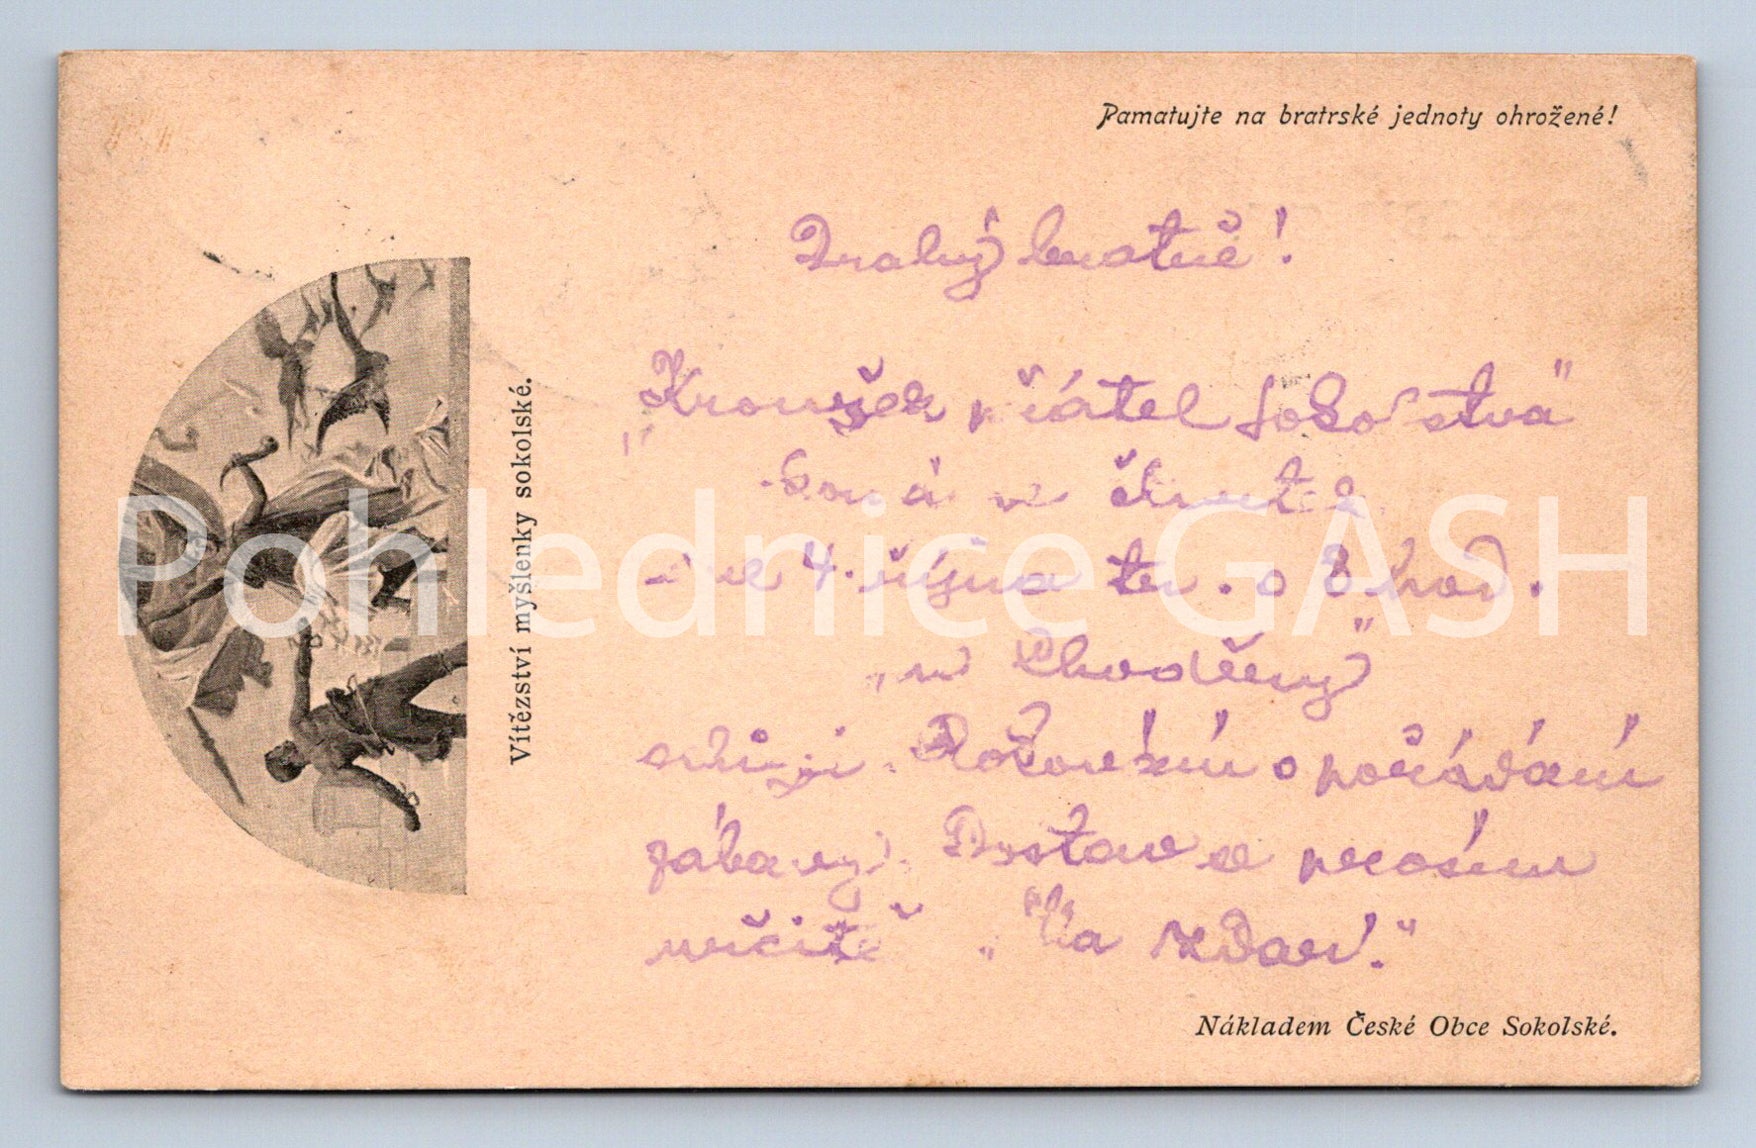 Pamatujte na bratrské jednoty ohrožené!
Drahý bratře!
„Kroužek přátel Sokolstva"
koná v čtvrtek
dne 4. října t.r. o 8 hod.
„u Choděry"
schůzi. Rokování o pořádání
zábavy. Dostav se prosím
určitě. „Na zdar!"
Nákladem České Obce Sokolské.
Vítězství myšlenky sokolské.
Pohlednice GASH